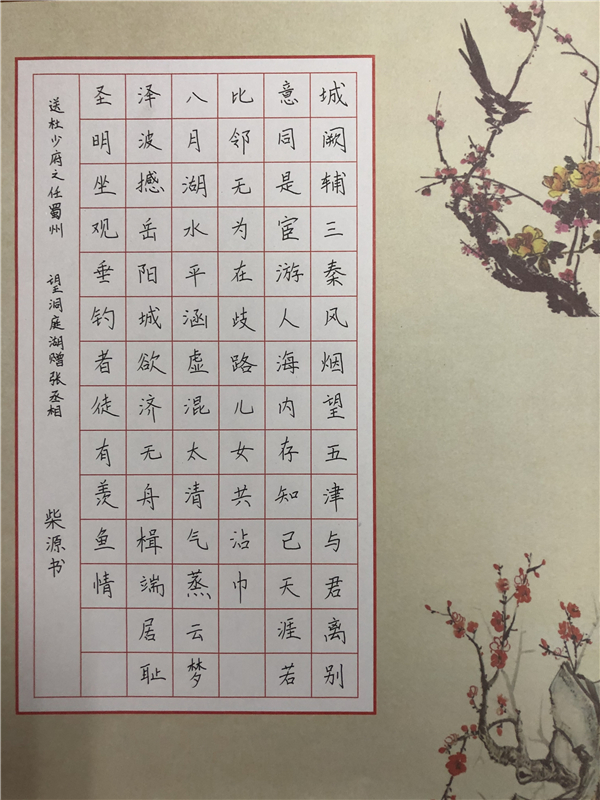 城阙辅三秦风烟望五津与君离别
意同是宦游人海内存知己天涯若
比邻无为在歧路儿女共沾巾
八月湖水平涵虚混太清气蒸云梦
泽波撼岳阳城欲济无舟楫端居耻
圣明坐观垂钓者徒有羡鱼情
送杜少府之任蜀州 望洞庭湖赠张丞相
柴源书